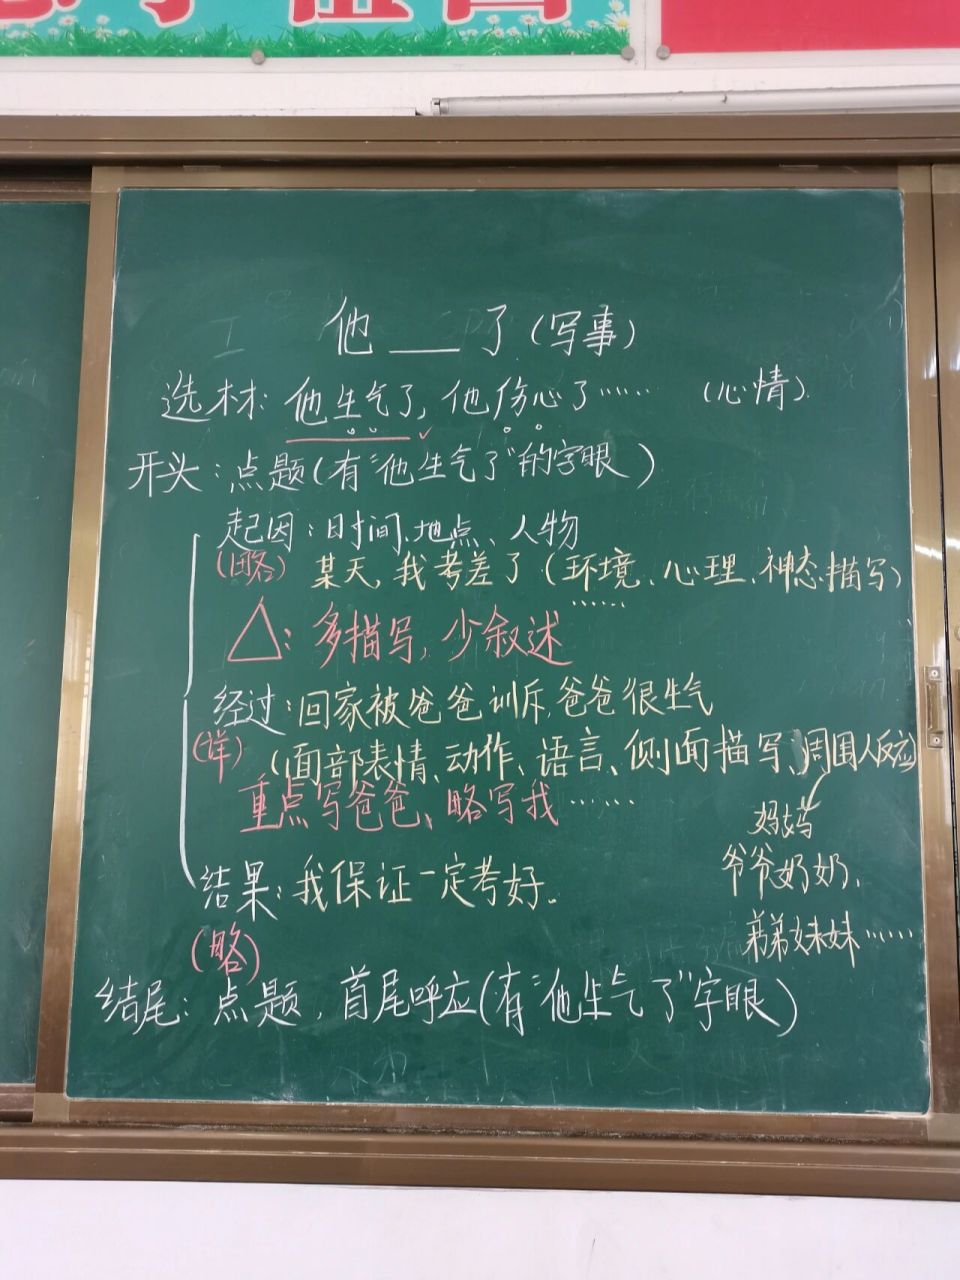 他____了(写事)
选材:他生气了,他伤心了……(心情)
开头:点题(有“他生气了”的字眼)
起因:时间、地点、人物
(略) 某天,我考差了(环境、心理、神态描写)
……
△:多描写,少叙述
经过:回家被爸爸训斥,爸爸很生气
(详) (面部表情、动作、语言、侧面描写、周围人反应)
重点写爸爸、略写我……
妈妈
爷爷奶奶、
弟弟妹妹……
结果:我保证一定考好。
(略)
结尾:点题,首尾呼应(有“他生气了”字眼)